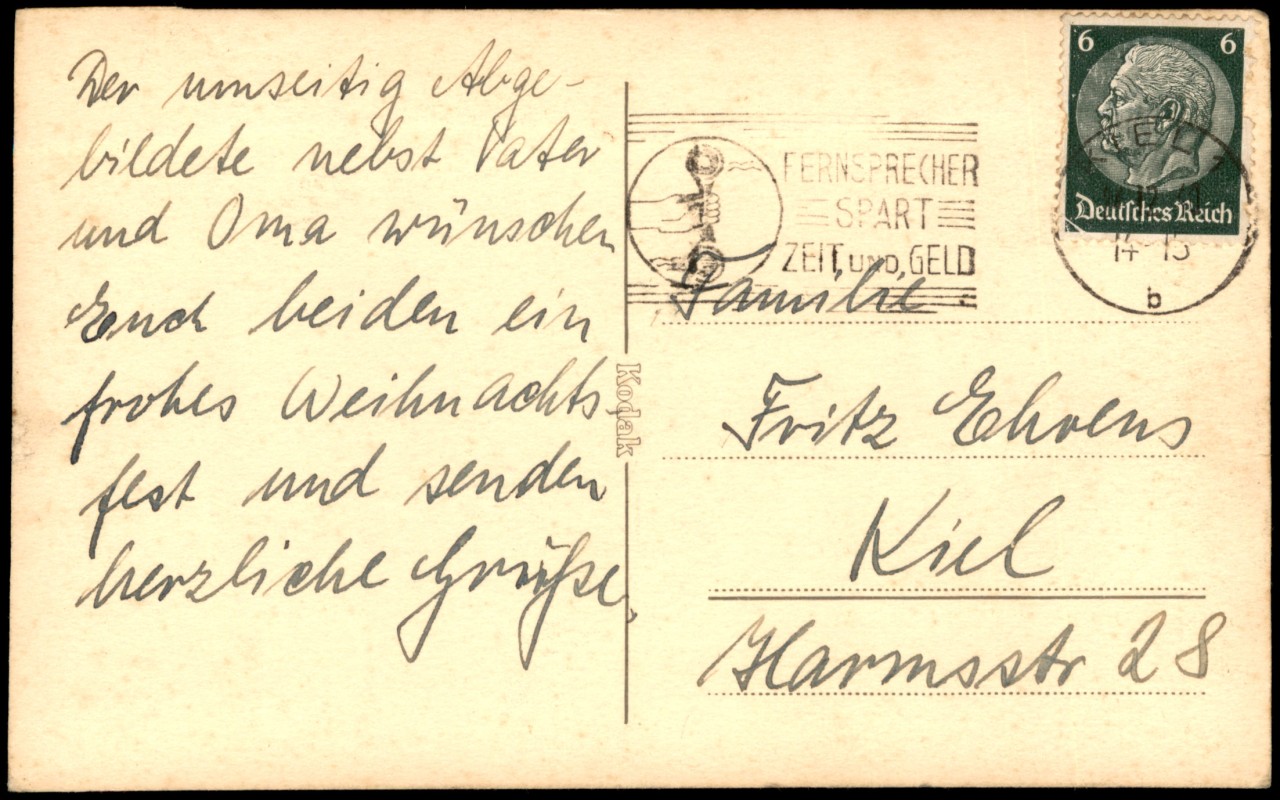 Der umseitig Abge-
bildete nebst Vater
und Oma wünschen
Euch beiden ein
frohes Weihnachts-
fest und senden
herzliche Grüße.
Kodak
6 6
Deutsches Reich
FERNSPRECHER
SPART
ZEIT UND GELD
14-15
b
Familie
Fritz Ehrens
Kiel
Harmsstr 28